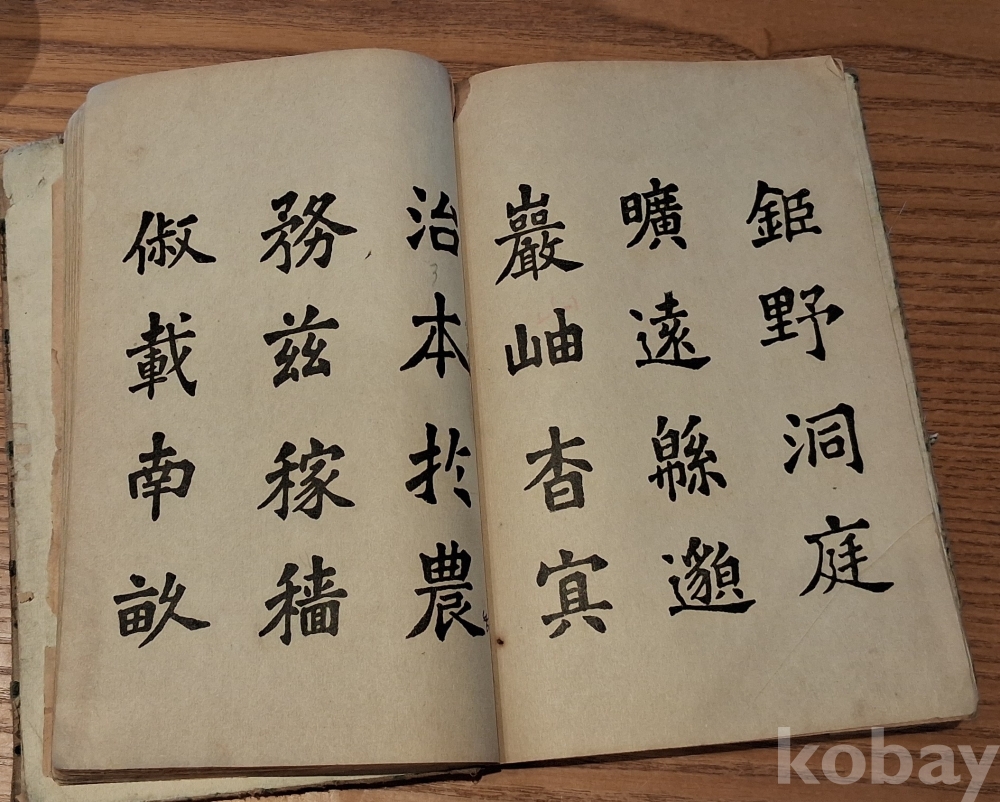 鉅野洞庭
曠遠緜邈
巖岫杳冥
治本於農
務茲稼穡
俶載南畝
3
kobay